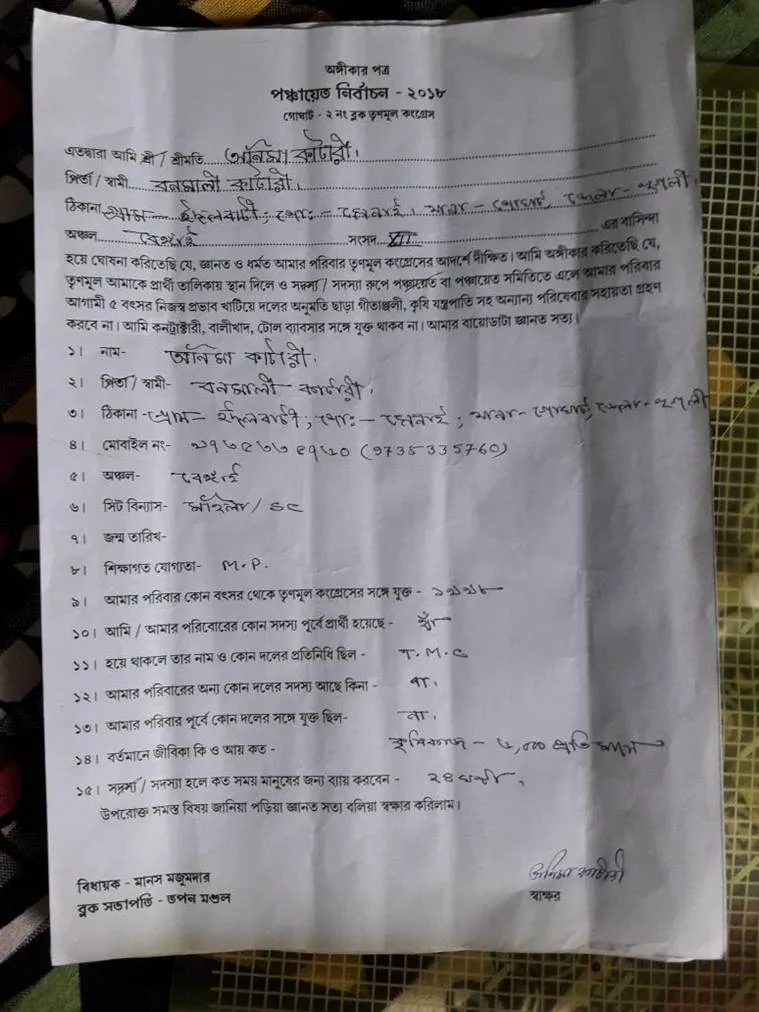 অঙ্গীকার পত্র
পঞ্চায়েত নির্বাচন - ২০১৮
গোঘাট - ২ নং ব্লক তৃণমূল কংগ্রেস
এতদ্বারা আমি শ্রী / শ্রীমতি অনিমা কাটারী।
পিতা / স্বামী বনমালী কাটারী।
ঠিকানা গ্রাম - পোঃ - থানা - গোঘাট, জেলা - হুগলী।
অঞ্চল বেঙ্গাই সংসদ XII এর বাসিন্দা
হয়ে ঘোষনা করিতেছি যে, জ্ঞানত ও ধর্মত আমার পরিবার তৃণমূল কংগ্রেসের আদর্শে দীক্ষিত। আমি অঙ্গীকার করিতেছি যে,
তৃণমূল আমাকে প্রার্থী তালিকায় স্থান দিলে ও সদস্য / সদস্যা রুপে পঞ্চায়েত বা পঞ্চায়েত সমিতিতে এলে আমার পরিবার
আগামী ৫ বৎসর নিজস্ব প্রভাব খাটিয়ে দলের অনুমতি ছাড়া গীতাঞ্জলী, কৃষি যন্ত্রপাতি সহ অন্যান্য পরিষেবার সহায়তা গ্রহণ
করবে না। আমি কনট্রাক্টারী, বালীখাদ, টোল ব্যাবসার সঙ্গে যুক্ত থাকব না। আমার বায়োডাটা জ্ঞানত সত্য।
১। নাম- অনিমা কাটারী।
২। পিতা / স্বামী- বনমালী কাটারী।
৩। ঠিকানা - গ্রাম - পোঃ - থানা - গোঘাট, জেলা - হুগলী
৪। মোবাইল নং- ৯৭৩৫৩৩৫৭৬০ (9735335760)
৫। অঞ্চল- বেঙ্গাই
৬। সিট বিন্যাস- মহিলা / SC
৭। জন্ম তারিখ-
৮। শিক্ষাগত যোগ্যতা- M.P.
৯। আমার পরিবার কোন বৎসর থেকে তৃণমূল কংগ্রেসের সঙ্গে যুক্ত - ১৯৯৮
১০। আমি / আমার পরিবোরের কোন সদস্য পূর্বে প্রার্থী হয়েছে - হ্যাঁ
১১। হয়ে থাকলে তার নাম ও কোন দলের প্রতিনিধি ছিল - T.M.C
১২। আমার পরিবারের অন্য কোন দলের সদস্য আছে কিনা - না।
১৩। আমার পরিবার পূর্বে কোন দলের সঙ্গে যুক্ত ছিল- না।
১৪। বর্তমানে জীবিকা কি ও আয় কত - কৃষিকাজ - প্রতি মাস
১৫। সদস্য / সদস্যা হলে কত সময় মানুষের জন্য ব্যায় করবেন - ২৪ ঘন্টা।
উপরোক্ত সমস্ত বিষয় জানিয়া পড়িয়া জ্ঞানত সত্য বলিয়া স্বক্ষার করিলাম।
বিধায়ক - মানস মজুমদার
ব্লক সভাপতি - তপন মণ্ডল
অনিমা কাটারী
স্বাক্ষর